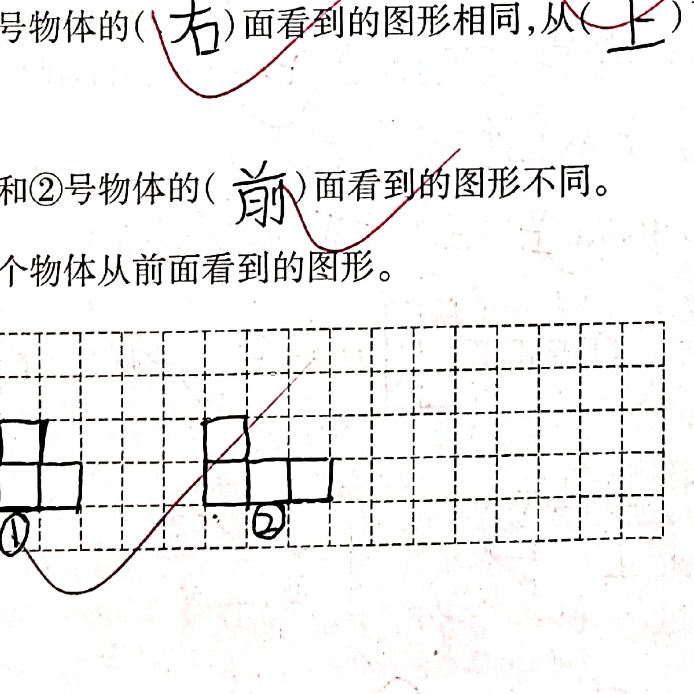 号物体的(右)面看到的图形相同,从(上)
和②号物体的(前)面看到的图形不同。
个物体从前面看到的图形。
① ②